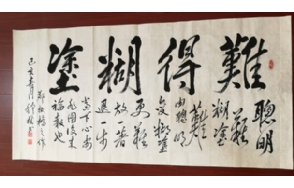 難得糊塗
聰明難
糊塗
難
由聰明
糊塗
更難
放一着
退一步
當下心安
非圖後來
福報也
鄭板橋之作
己亥春月